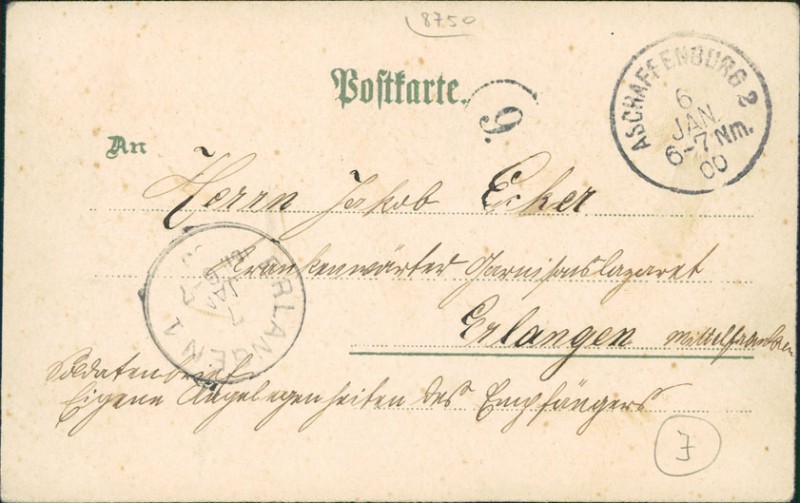 8750
Postkarte.
9.
ASCHAFFENBURG 2
6.
JAN.
6-7 Nm.
00
An
Herrn Jakob Ecker
Krankenwärter Garnisonslazaret
Erlangen Mittelfranken
ERLANGEN 1
7
JAN
Soldatenbrief
Eigene Angelegenheiten des Empfängers
J